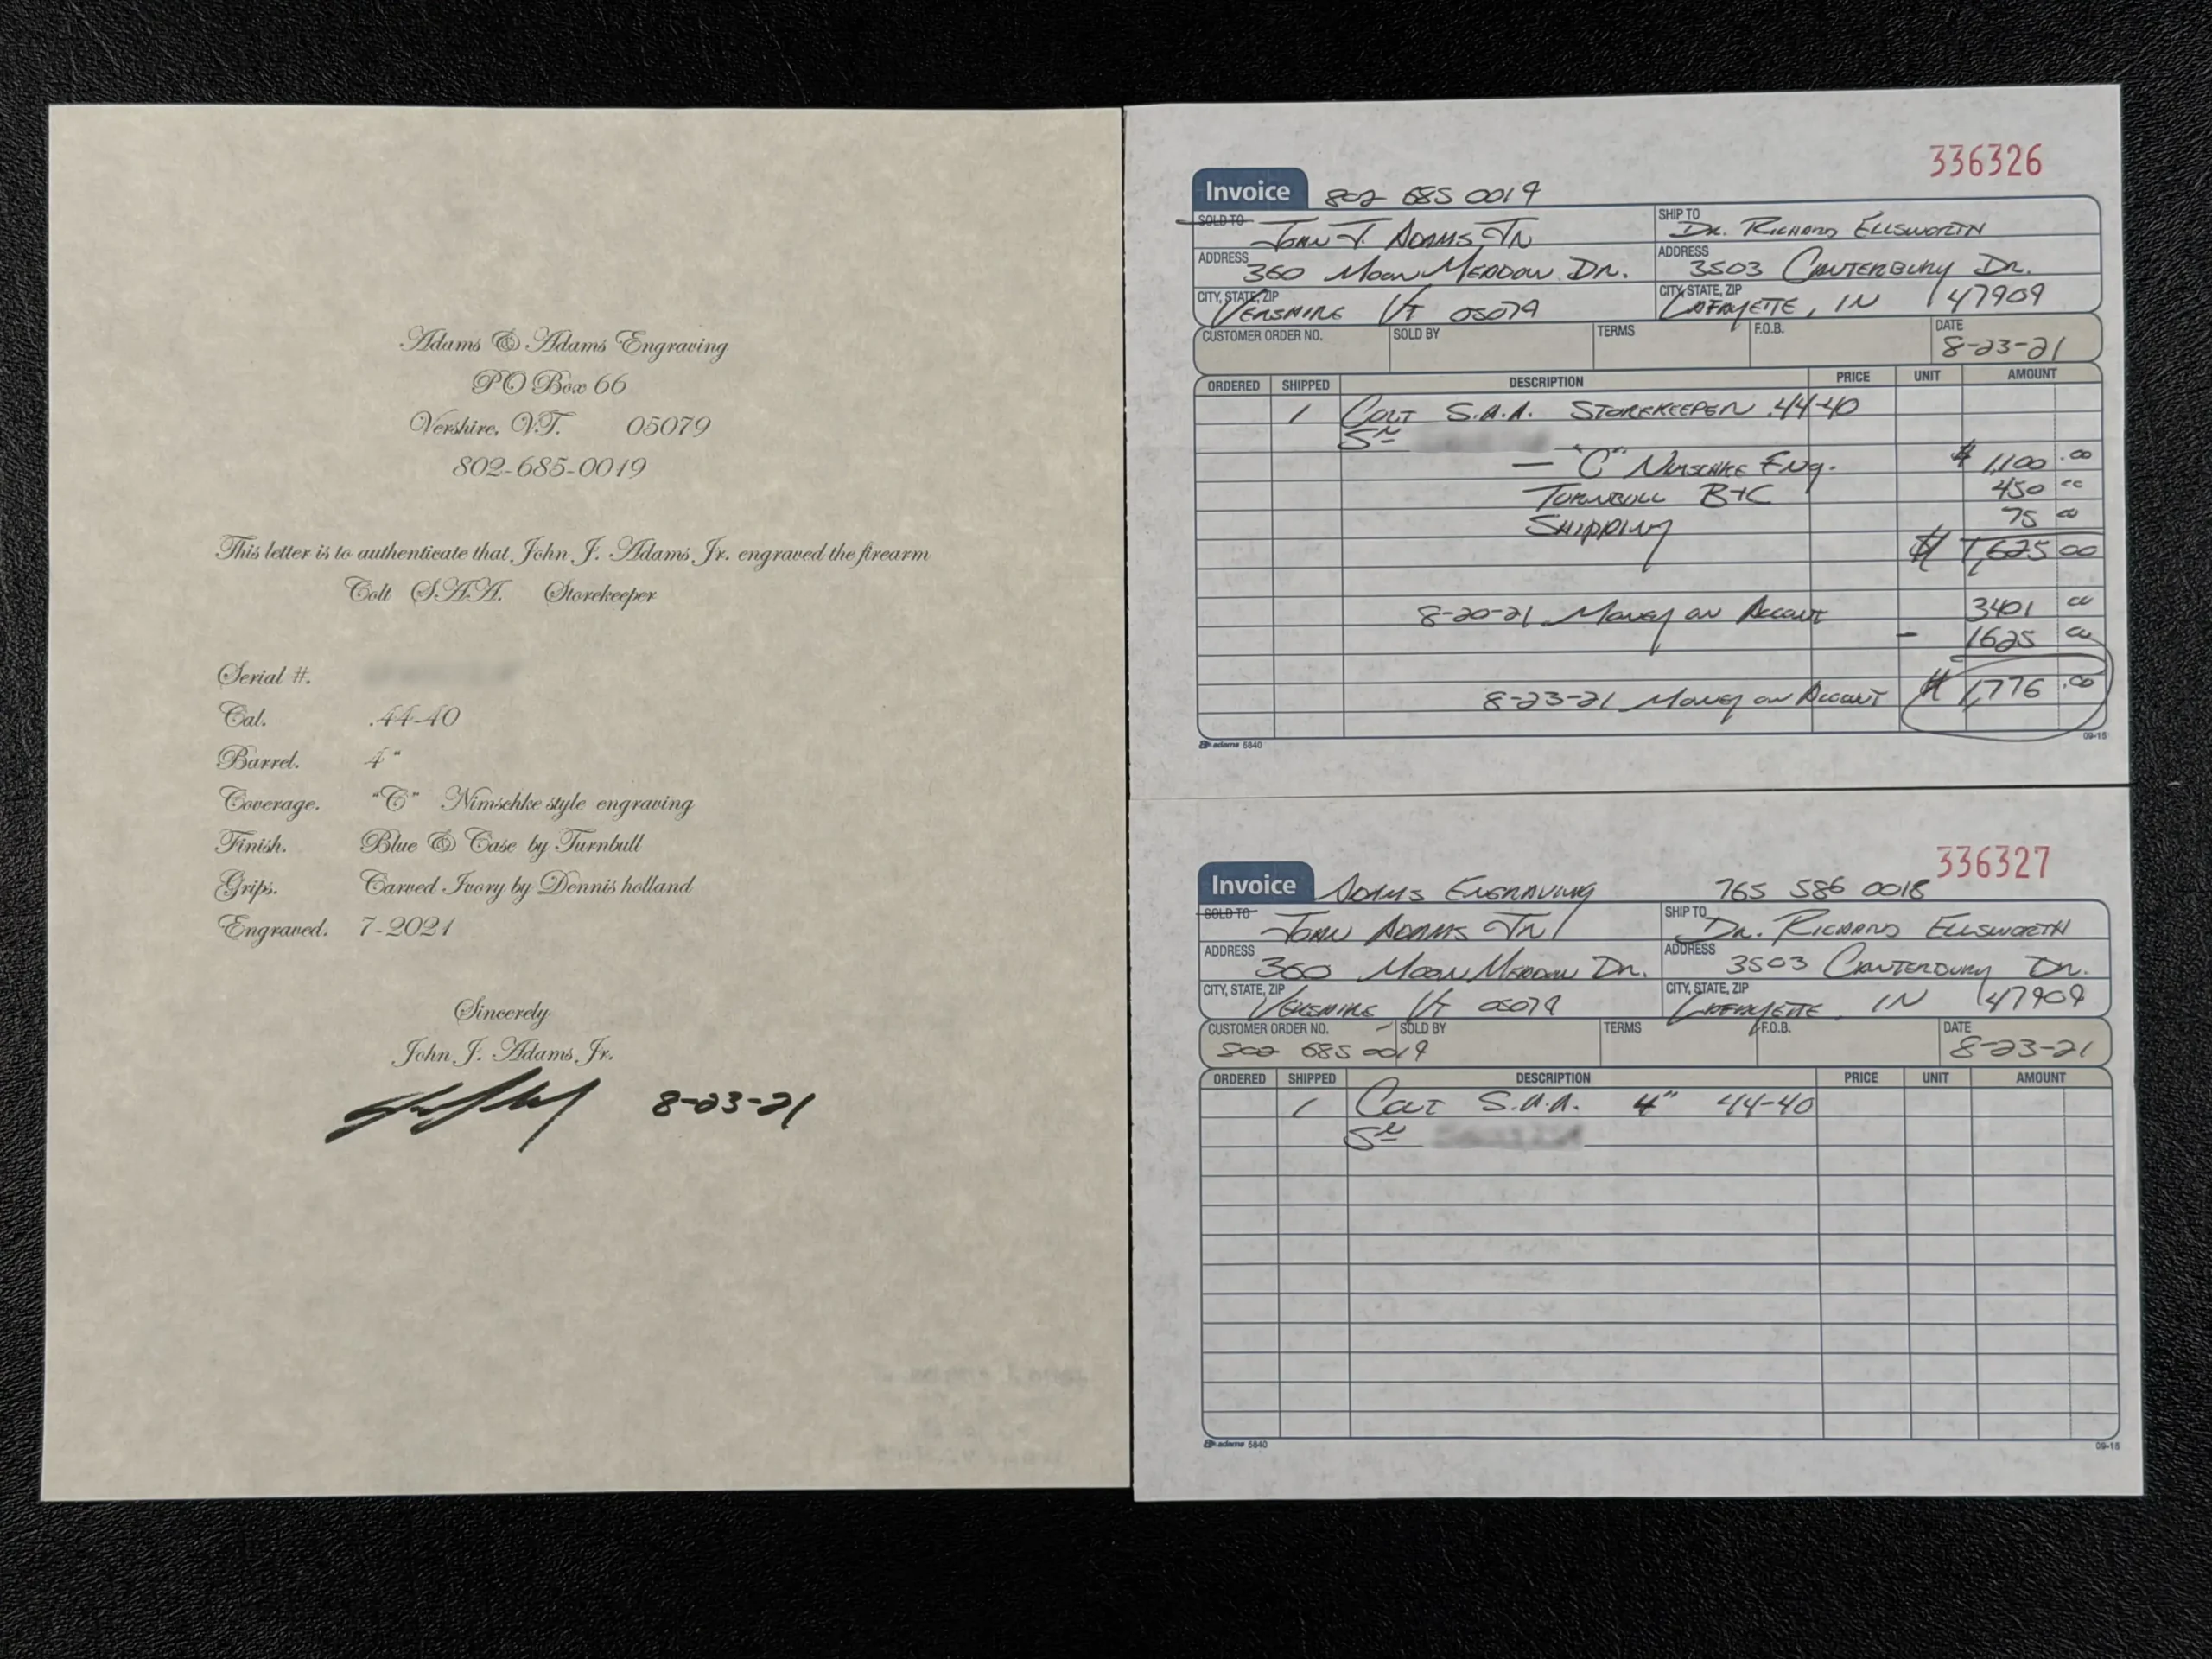 Adams & Adams Engraving
PO Box 66
Vershire, VT. 05079
802-685-0019
This letter is to authenticate that John J. Adams Jr. engraved the firearm
Colt S.A.A. Storekeeper
Serial #.
Cal. .44-40
Barrel. 4"
Coverage. "C" Nimschke style engraving
Finish. Blue & Case by Turnbull
Grips. Carved Ivory by Dennis holland
Engraved. 7-2021
Sincerely
John J. Adams, Jr.
8-23-21
336326
Invoice 802 685 0019
SOLD TO John J. Adams, Jr SHIP TO Dr. Richard Ellsworth
ADDRESS 360 Moon Meadow Dr. ADDRESS 3503 Canterbury Dr.
CITY, STATE, ZIP Vershire VT 05079 CITY, STATE, ZIP Lafayette, IN 47909
CUSTOMER ORDER NO. SOLD BY TERMS F.O.B. DATE
8-23-21
ORDERED SHIPPED DESCRIPTION PRICE UNIT AMOUNT
1 Colt S.A.A. Storekeeper .44-40
Sn
— "C" Nimschke Eng. $1,100.00
Turnbull B+C 450 00
Shipping 75 00
$1,625 00
8-20-21 Money on Account 3401 00
- 1625 00
8-23-21 Money on Account $1,776.00
adams 5840 09-15
336327
Invoice Adams Engraving 765 586 0018
SOLD TO John Adams Jr SHIP TO Dr. Richard Ellsworth
ADDRESS 360 Moon Meadow Dr. ADDRESS 3503 Canterbury Dr.
CITY, STATE, ZIP Vershire VT 05079 CITY, STATE, ZIP Lafayette, IN 47909
CUSTOMER ORDER NO. SOLD BY TERMS F.O.B. DATE
802 685 0019 8-23-21
ORDERED SHIPPED DESCRIPTION PRICE UNIT AMOUNT
1 Colt S.A.A. 4" 44-40
Sn
adams 5840 09-15